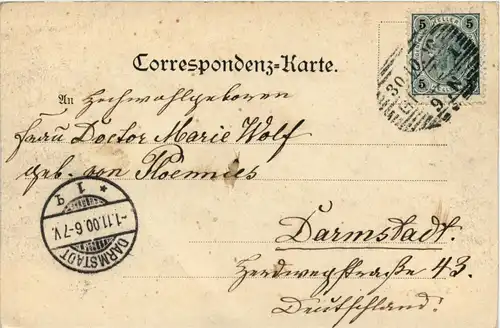 5 HELLER 5
Correspondenz-Karte.
30.10.
An Hochwohlgeboren
Frau Doctor Marie Wolf
geb. von Ploennies
Darmstadt.
Herdwegstraße 43.
Deutschland.
* 1 q
-1.11.00.6-7V.
DARMSTADT